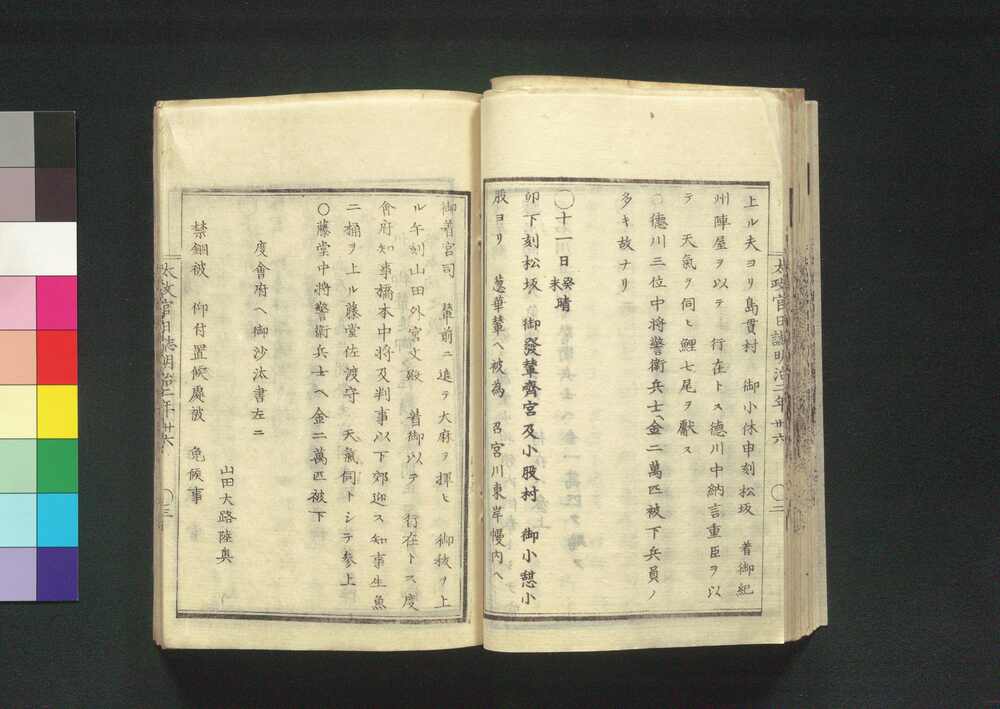 上ル夫ヨリ島貫村　御小休申刻松坂　着御紀
州陣屋ヲ以テ　行在トス德川中納言重臣ヲ以
テ　天氣ヲ伺ヒ鯉七尾ヲ獻ス
○德川三位中将警衛兵士ヘ金二萬匹被下兵員ノ
多キ故ナリ
○十一日癸未晴
卯下刻松坂　御發輦齊宮及小股村　御小憇小
股ヨリ　葱華輦ヘ被為　召宮川東岸幔内ヘ
太政官日誌明治二年　廿六　○二
御着宮司　輦前ニ進テ大麻ヲ揮ヒ　御祓ヲ上
ル午刻山田外宮文殿　着御以テ　行在トス度
會府知事橋本中将及判事以下郊迎ス知事生魚
二桶ヲ上ル藤堂佐渡守　天氣伺トシテ參上
○藤堂中将警衛兵士ヘ金二萬匹被下
度會府ヘ御沙汰書左ニ
山田大路陸奥
禁錮被　仰付置候處被　免候事
太政官日誌明治二年　廿六　○三